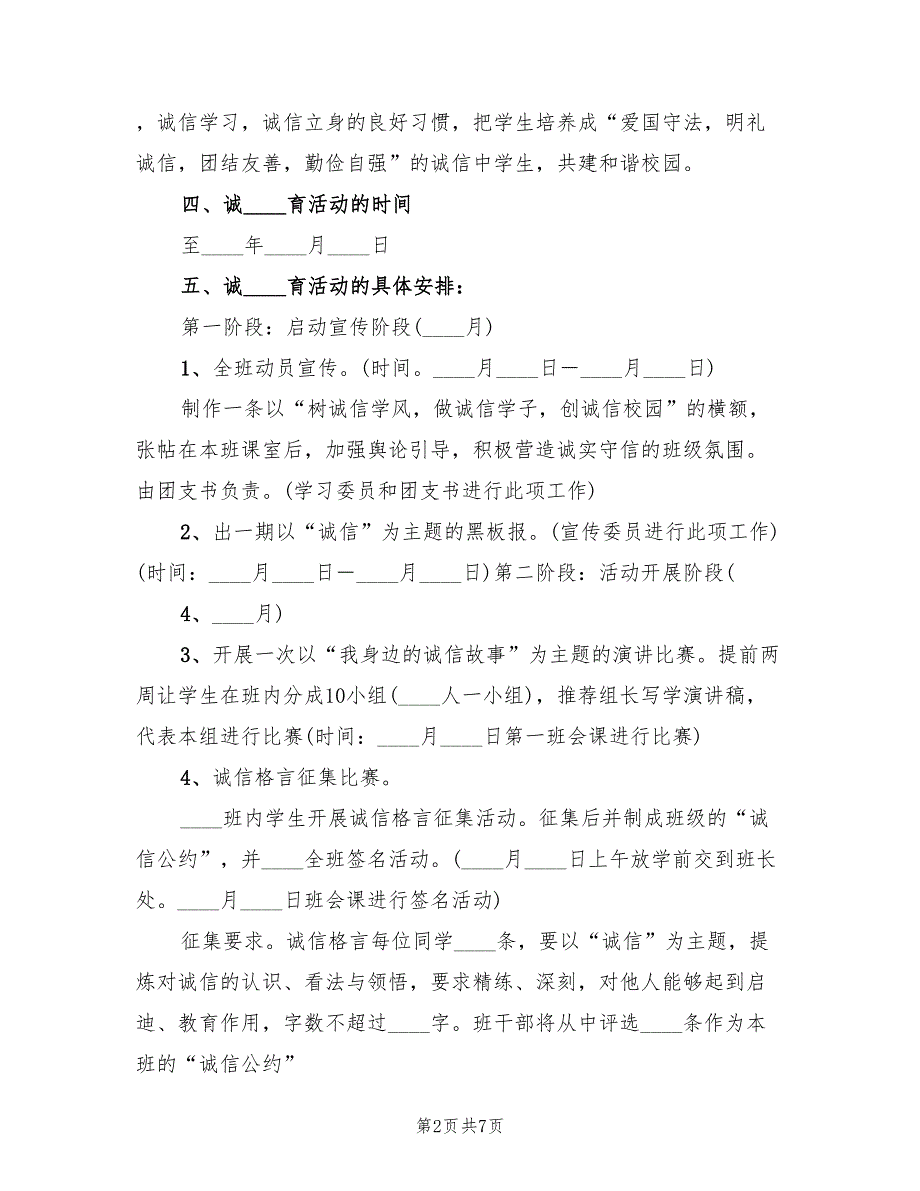 ，诚信学习，诚信立身的良好习惯，把学生培养成“爱国守法，明礼
诚信，团结友善，勤俭自强”的诚信中学生，共建和谐校园。
四、诚____育活动的时间
至____年____月____日
五、诚____育活动的具体安排：
第一阶段：启动宣传阶段(____月)
1、全班动员宣传。(时间。____月____日－____月____日)
制作一条以“树诚信学风，做诚信学子，创诚信校园”的横额，
张帖在本班课室后，加强舆论引导，积极营造诚实守信的班级氛围。
由团支书负责。(学习委员和团支书进行此项工作)
2、出一期以“诚信”为主题的黑板报。(宣传委员进行此项工作)
(时间：____月____日－____月____日)第二阶段：活动开展阶段(
4、____月)
3、开展一次以“我身边的诚信故事”为主题的演讲比赛。提前两
周让学生在班内分成10小组(____人一小组)，推荐组长写学演讲稿，
代表本组进行比赛(时间：____月____日第一班会课进行比赛)
4、诚信格言征集比赛。
____班内学生开展诚信格言征集活动。征集后并制成班级的“诚
信公约”，并____全班签名活动。(____月____日上午放学前交到班长
处。____月____日班会课进行签名活动)
征集要求。诚信格言每位同学____条，要以“诚信”为主题，提
炼对诚信的认识、看法与领悟，要求精练、深刻，对他人能够起到启
迪、教育作用，字数不超过____字。班干部将从中评选____条作为本
班的“诚信公约”
第2页共7页